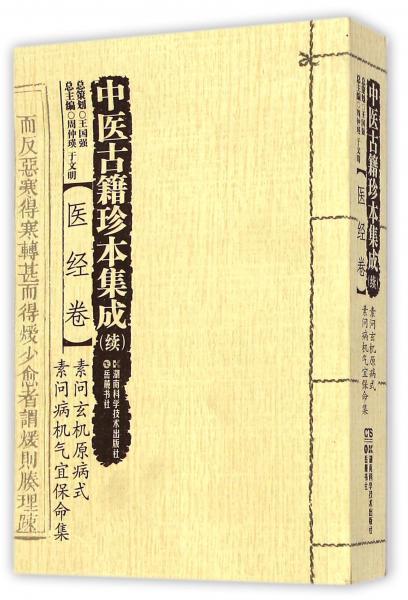 中医古籍珍本集成(续)
总策划○王国强
总主编○周仲瑛 于文明
【医经卷】
素问玄机原病式
素问病机气宜保命集
湖南科学技术出版社
岳麓书社
而反惡寒得寒轉甚而得煖少愈者謂煖則腠理疎
中医古籍珍本集成(续)
总策划○王国强
总主编○周仲瑛 于文明
【医经卷】
素问玄机原病式
素问病机气宜保命集
湖南科学技术出版社
岳麓书社